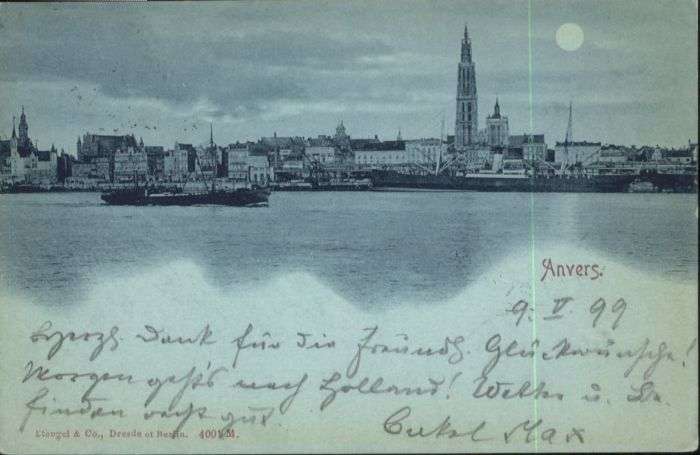 Anvers.
9. V. 99
Herzl. Dank für die Freundl. Glückwünsche!
Morgen geht's nach Holland! Wetter u.
finden recht gut. Onkel Max
Stengel & Co., Dresde et Berlin. 4001 M.